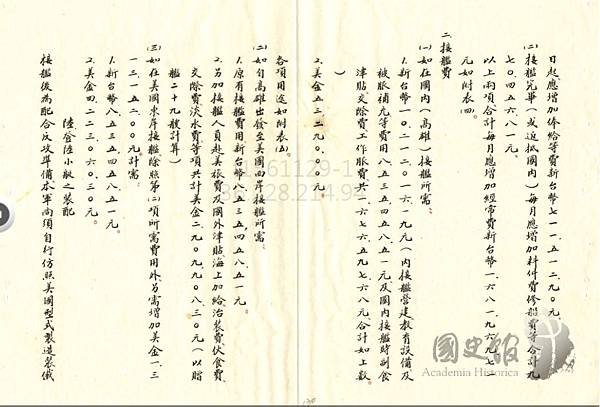 日起應增加俸給等費新台幣七一一、五一二.九〇元。
(二)接艦完畢(或返抵國內)每月應增加料件費修船費等合計九
七〇、四五六.八一元。
以上兩項合計每月應增加經常費新台幣一、六八一、九六九.七一
元如附表(四)。
二、接艦費
(一)如在國內(高雄)接艦所需:
1.新台幣一〇、二一二、〇一六.一九元(內接艦營建教育設備及
被服補充等費用八、五三五、四八五.五一元及國內接艦時副食
津貼交際費工作服費共一、六七六、五九七.六八元合計如上數
)
2.美金五三、二九〇.〇〇元。
各項用途如附表(五)。
(二)如自高雄出發至美國西岸接艦所需:
1.原有接艦費用新台幣八、五三五、四八五.五一元。
2.另加接艦人員赴美旅費及國外津貼海上加給治裝費伏食費
交際費淡水費等項共計美金二、九〇〇、九九〇.八三〇元(以贈
艦二十九艘計算)
(三)如在美國東岸接艦除照第(二)項所需費用外另需增加美金一、三
一三、一五二.〇〇元計需:
1.新台幣八、五三五、四八五.五一元。
2.美金四、二二三、〇六〇.三〇元。
陸登陸小艇之裝配
接艦後為配合反攻準備本軍尚須自行仿照美國型式製造裝儀
國史館
Academia Historica